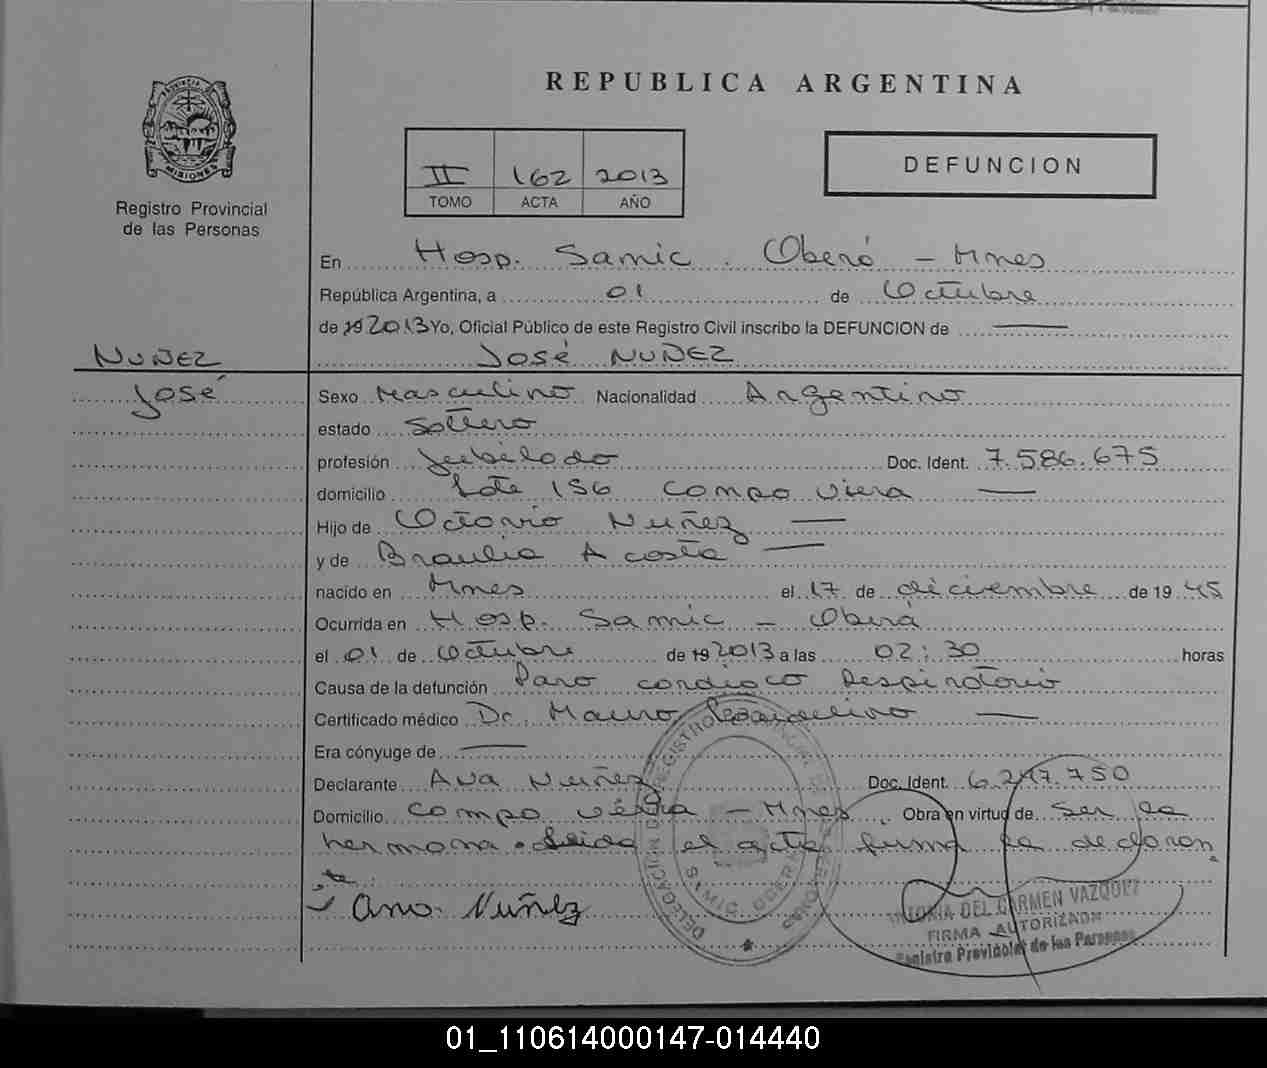 REPUBLICA ARGENTINA
PROVINCIA
MISIONES
Registro Provincial
de las Personas
II 162 2013
TOMO ACTA AÑO
DEFUNCION
En Hosp. Samic. Oberá - Mnes
República Argentina, a 01 de Octubre
de 19 2013 Yo, Oficial Público de este Registro Civil inscribo la DEFUNCION de —
NUÑEZ
José
José NUÑEZ
Sexo Masculino Nacionalidad Argentino
estado Soltero
profesión Jubilado Doc. Ident. 7.586.675
domicilio Lote 156 Campo Viera —
Hijo de Octavio Nuñez —
y de Braulia Acosta —
nacido en Mnes el 17 de diciembre de 19 45
Ocurrida en Hosp. Samic - Oberá
el 01 de Octubre de 19 2013 a las 02:30 horas
Causa de la defunción Paro cardiaco Respiratorio
Certificado médico Dr. Mauro —
Era cónyuge de —
Declarante Ana Nuñez Doc. Ident. 6.247.750
Domicilio Campo Viera - Mnes. Obra en virtud de Ser la
hermana. Leida el acta firma la declaran
te.
Ana Nuñez
DEL CARMEN VAZQUEZ
FIRMA AUTORIZADA
Registro Provincial de las Personas
01_110614000147-014440